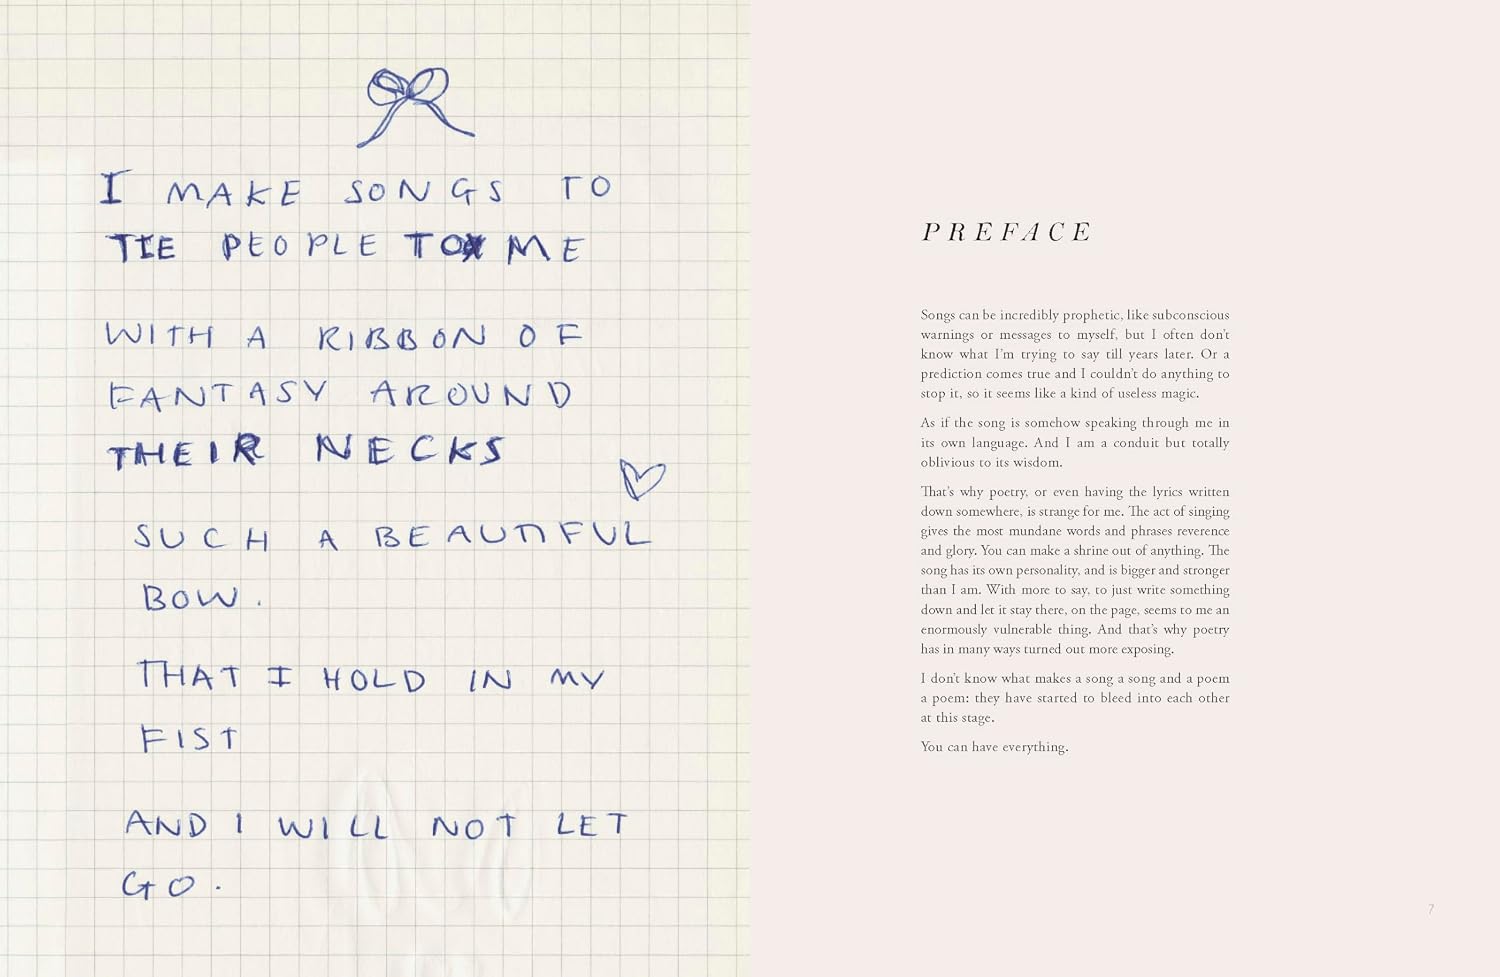 I MAKE SONGS TO
TIE PEOPLE TO ME
WITH A RIBBON OF
FANTASY AROUND
THEIR NECKS
SUCH A BEAUTIFUL
BOW.
THAT I HOLD IN MY
FIST
AND I WILL NOT LET
GO.
PREFACE
Songs can be incredibly prophetic, like subconscious
warnings or messages to myself, but I often don't
know what I'm trying to say till years later. Or a
prediction comes true and I couldn't do anything to
stop it, so it seems like a kind of useless magic.
As if the song is somehow speaking through me in
its own language. And I am a conduit but totally
oblivious to its wisdom.
That's why poetry, or even having the lyrics written
down somewhere, is strange for me. The act of singing
gives the most mundane words and phrases reverence
and glory. You can make a shrine out of anything. The
song has its own personality, and is bigger and stronger
than I am. With more to say, to just write something
down and let it stay there, on the page, seems to me an
enormously vulnerable thing. And that's why poetry
has in many ways turned out more exposing.
I don't know what makes a song a song and a poem
a poem: they have started to bleed into each other
at this stage.
You can have everything.
7